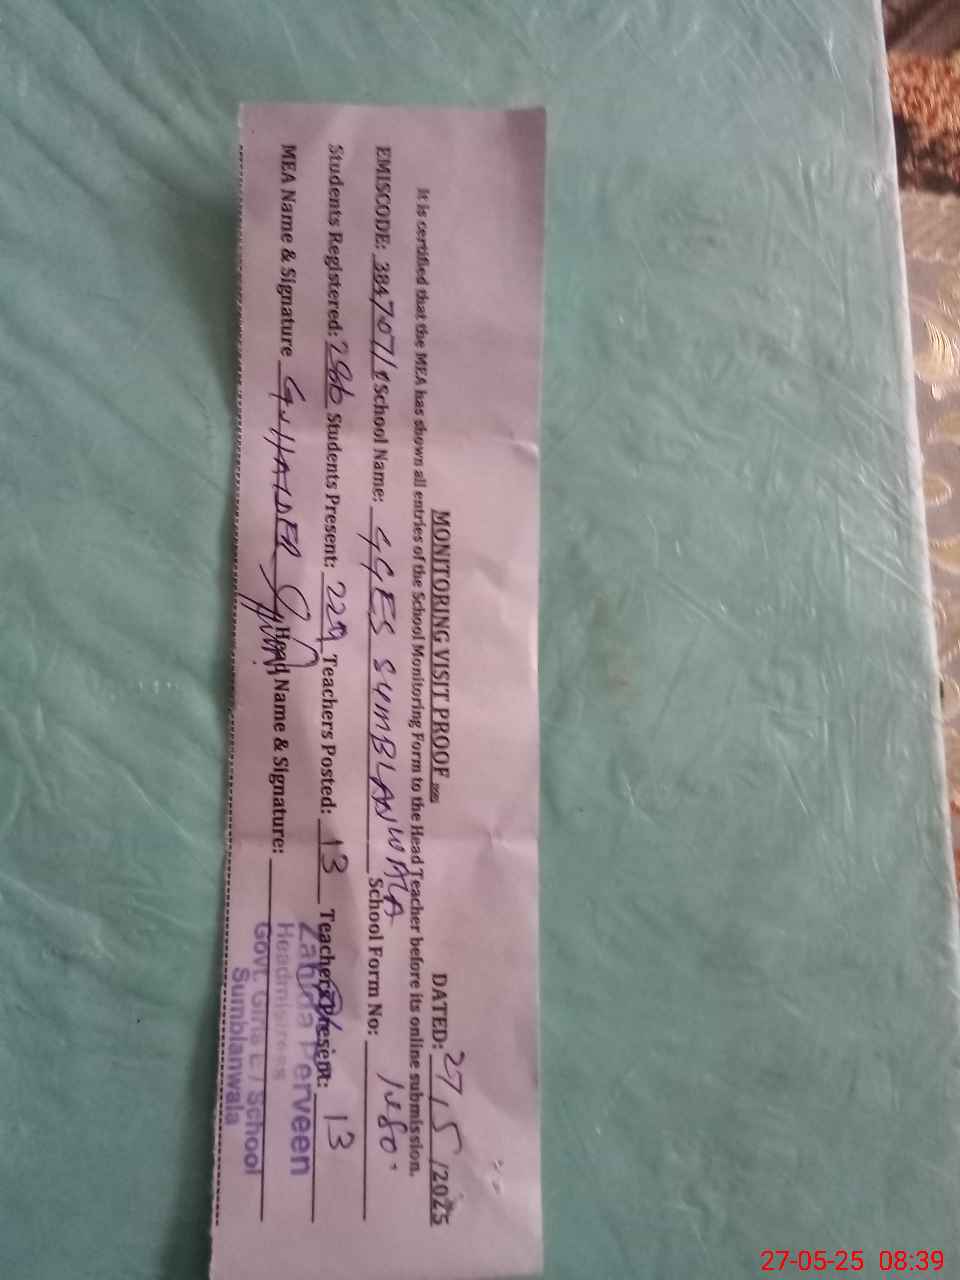 MONITORING VISIT PROOF DATED: 27/5/2025
It is certified that the MEA has shown all entries of the School Monitoring Form to the Head Teacher before its online submission.
EMISCODE: School Name: GGES SUMBLANWALA School Form No:
Students Registered: 286 Students Present: 229 Teachers Posted: 13 Teachers Present: 13
MEA Name & Signature Head Name & Signature:
Zahida Perveen
Headmistress
Govt. Girls E / School
Sumblanwala
27-05-25 08:39